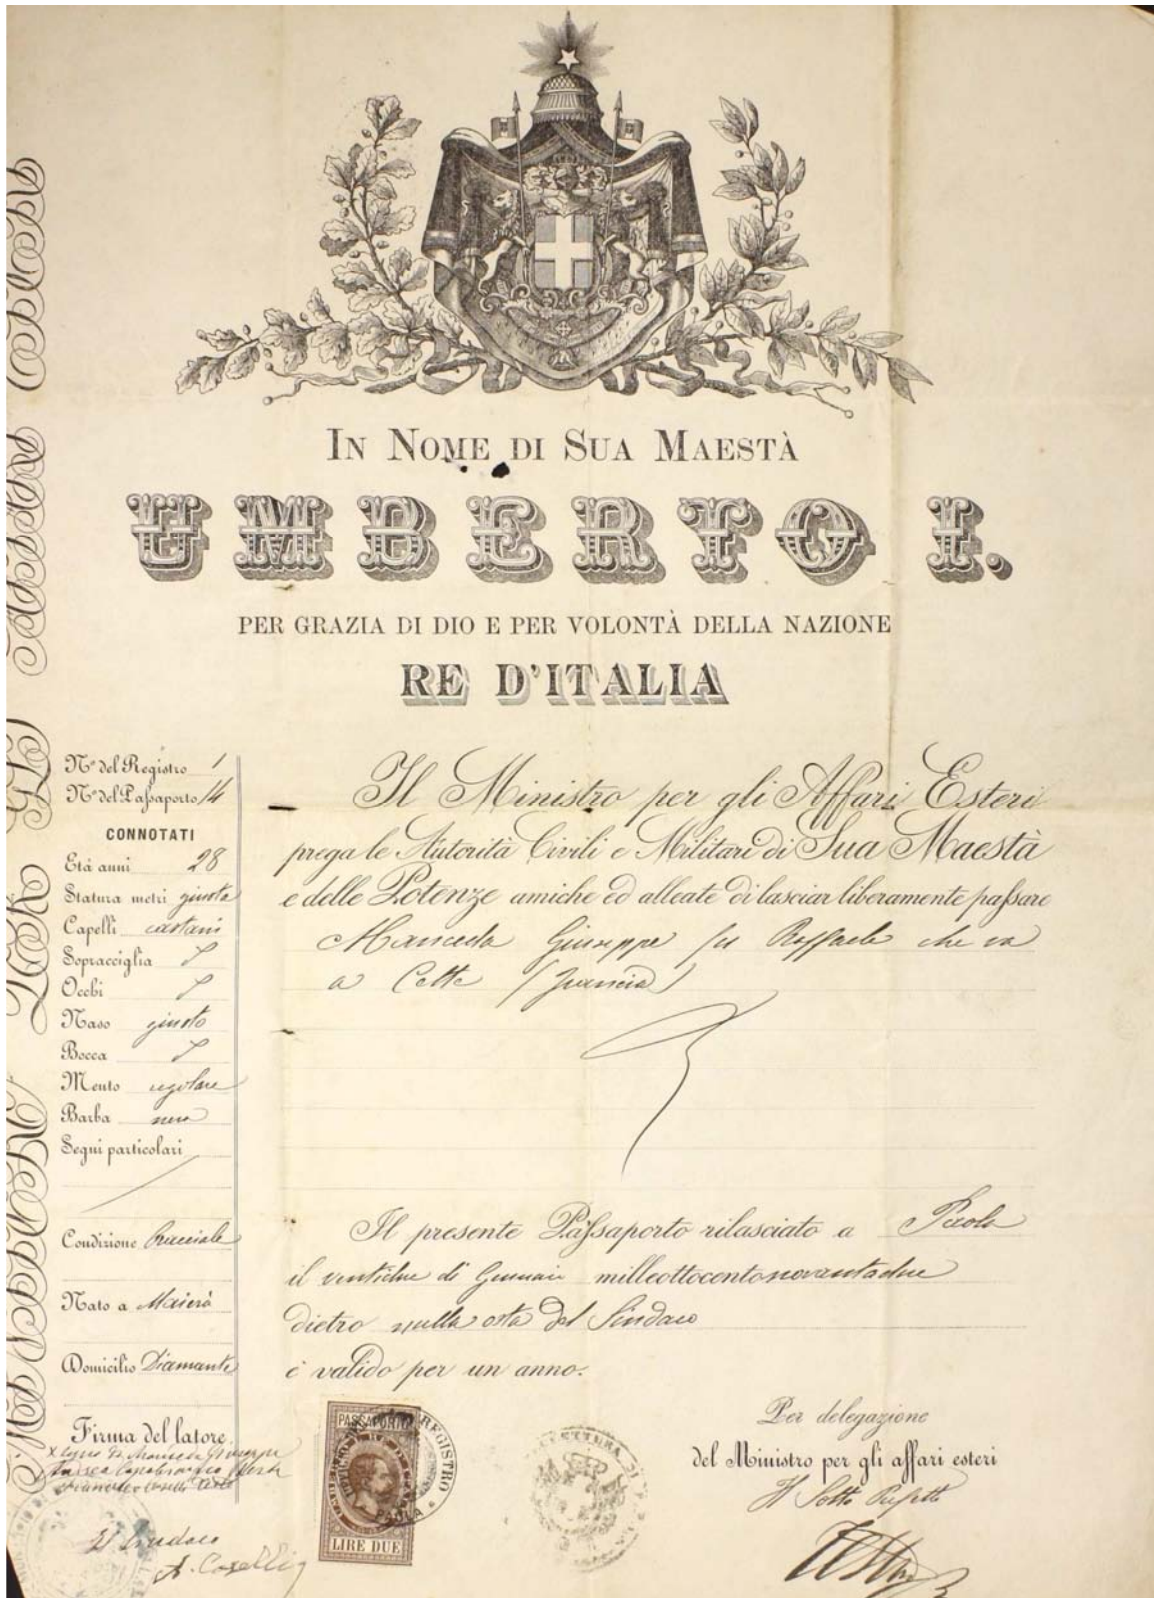 In Nome di Sua Maestà
UMBERTO I.
PER GRAZIA DI DIO E PER VOLONTÀ DELLA NAZIONE
RE D'ITALIA
N° del Registro 1
N° del Passaporto 14
CONNOTATI
Età anni 28
Statura metri giusta
Capelli castani
Sopracciglia
Occhi
Naso giusto
Bocca
Mento regolare
Barba nera
Segni particolari
Condizione Bracciale
Nato a Maierà
Domicilio Diamante
Firma del latore
Il Sindaco
Il Ministro per gli Affari Esteri
prega le Autorità Civili e Militari di Sua Maestà
e delle Potenze amiche ed alleate di lasciar liberamente passare
Giuseppe fu Raffaele che va
a Cette (Francia)
Il presente Passaporto rilasciato a Paola
il ventidue di Gennaio milleottocentonovantadue
dietro nulla osta del Sindaco
è valido per un anno.
PASSAPORTO
REGISTRO
PAOLA
LIRE DUE
Per delegazione
del Ministro per gli affari esteri
Il Sotto Prefetto